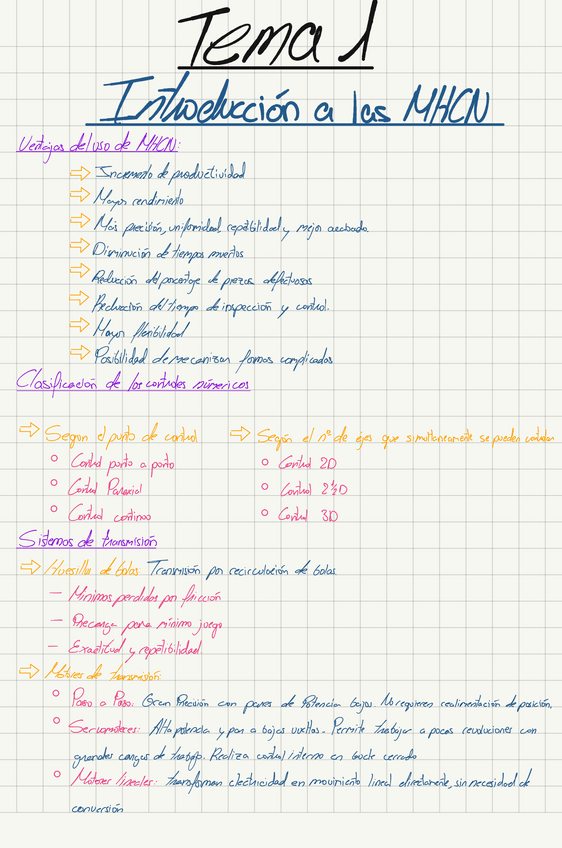 Tema 1
Introducción a las MHCN
Ventajas del uso de MHCN:
⇨ Incremento de productividad
⇨ Mayor rendimiento
⇨ Más precisión, uniformidad, repetibilidad y mejor acabado.
⇨ Disminución de tiempos muertos
⇨ Reducción del porcentaje de piezas defectuosas
⇨ Reducción del tiempo de inspección y control.
⇨ Mayor flexibilidad
⇨ Posibilidad de mecanizar formas complicadas
Clasificación de los controles numéricos
⇨ Según el punto de control
○ Control punto a punto
○ Control Paraxial
○ Control continuo
⇨ Según el nº de ejes que simultaneamente se pueden controlar
○ Control 2D
○ Control 2½D
○ Control 3D
Sistemas de transmisión
⇨ Husillo de bolas Transmisión por recirculación de bolas.
— Mínimas perdidas por fricción
— Precarga para mínimo juego
— Exactitud y repetibilidad
⇨ Motores de transmisión:
○ Paso a Paso: Gran Precisión con pares de Potencia bajos. No requieren realimentación de posición.
○ Servomotores: Alta potencia y par a bajas vueltas. Permite trabajar a pocas revoluciones con
grandes cargas de trabajo. Realiza control interno en bucle cerrado
○ Motores lineales: transforman electricidad en movimiento lineal directamente, sin necesidad de
conversión